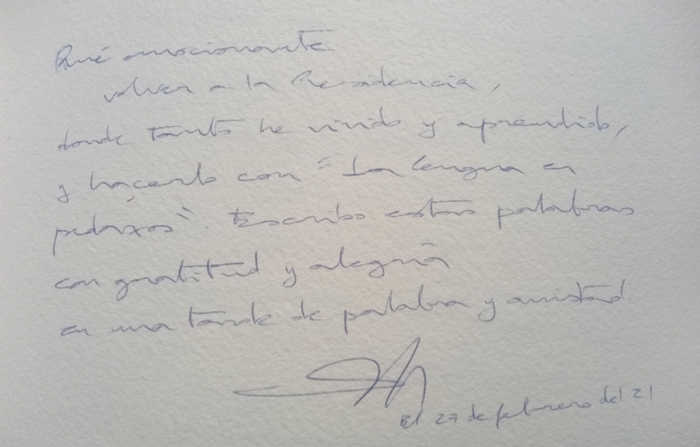 Qué emocionante
volver a la Residencia,
donde tanto he vivido y aprendido,
y hacerlo con "La lengua en
pedazos". Escribo estas palabras
con gratitud y alegría
en una tarde de palabra y amistad.
El 27 de febrero del 21